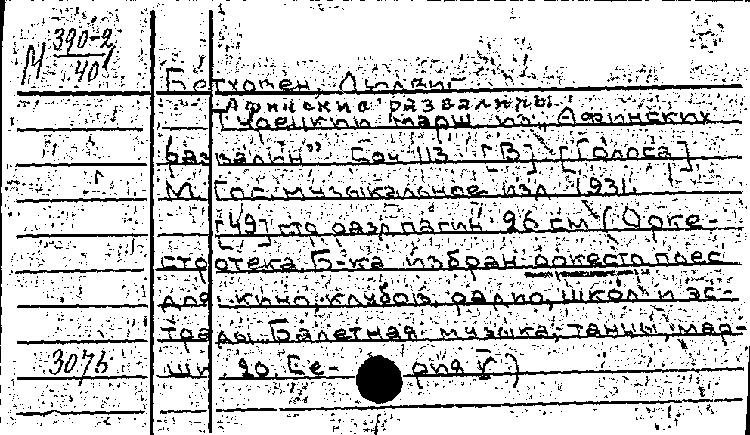 М 390-2
40
Бетховен, Людвиг
Афинские развалины.
Турецкий марш из „Афинских
развалин”. Соч. 113. [В] [Голоса]
М. Гос. музыкальное изд. 1931.
[49] стр. разд. пагин. 26 см (Орке-
стротека. Б-ка избран. оркестр. пьес
для кино, клубов, радио, школ и эс-
трады. Балетная музыка, танцы, мар-
3075 ши. 20. Се- рия V.)